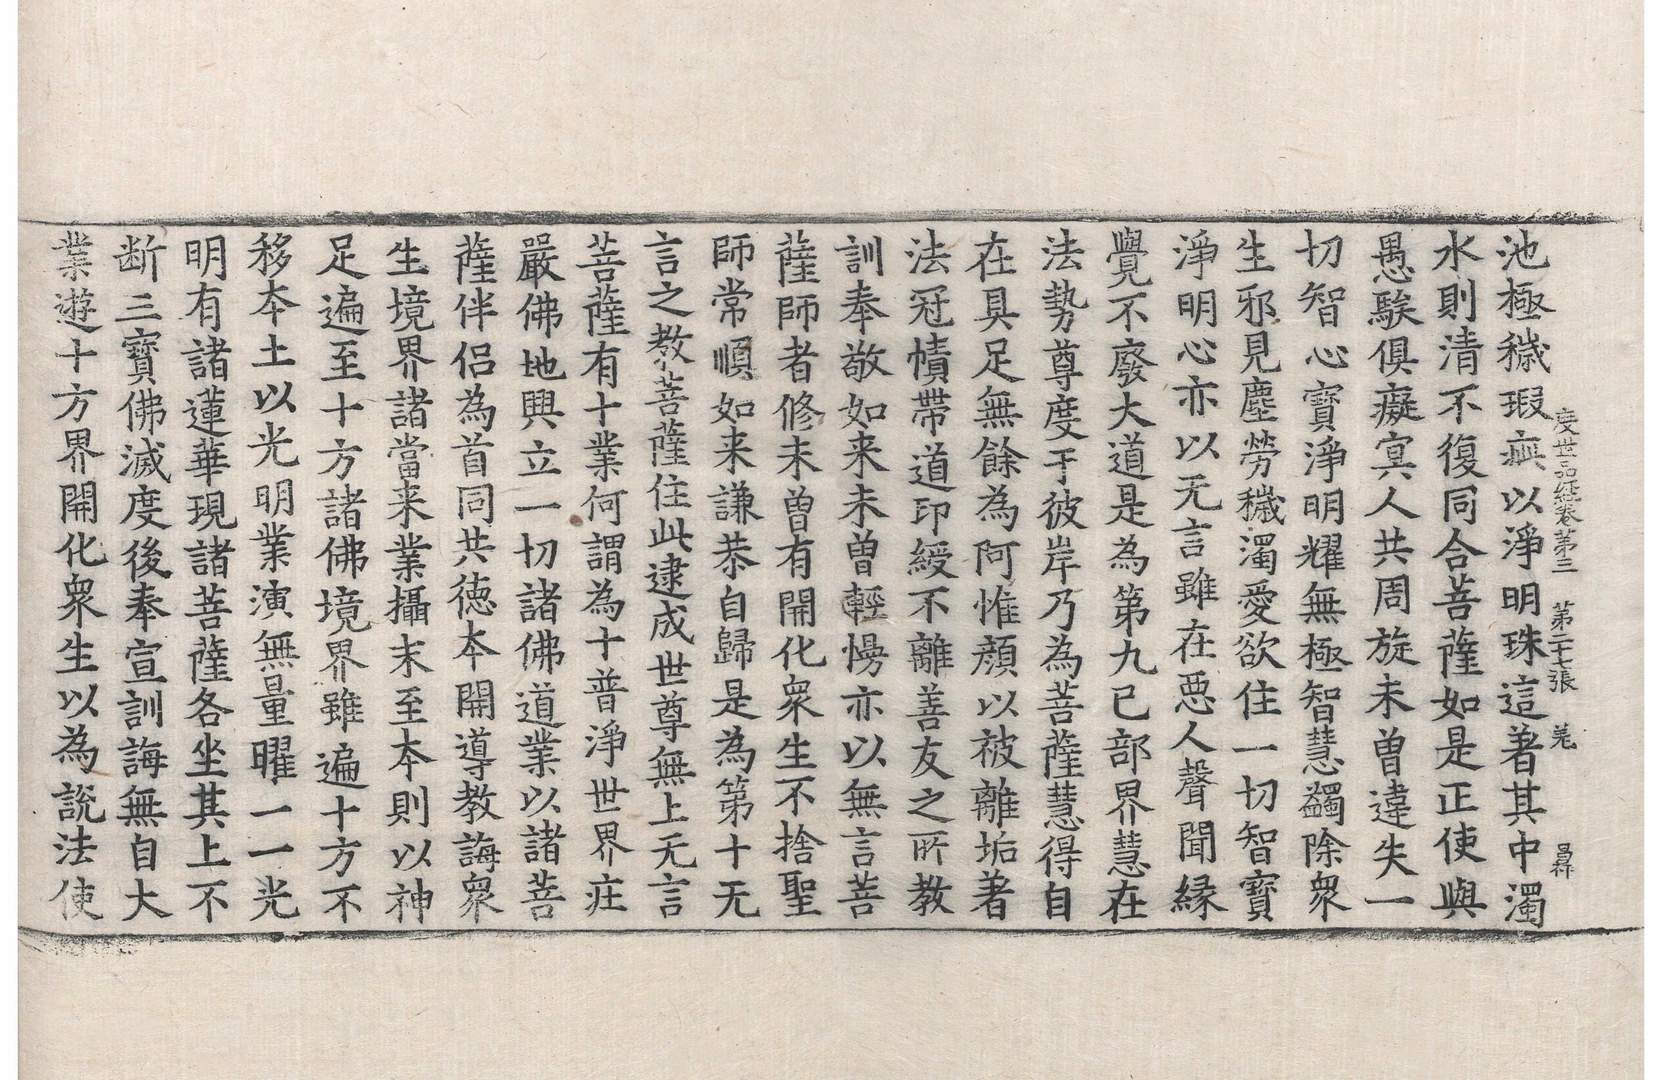 度世品経卷第三 第二十七張 羌
池極穢瑕疵以淨明珠這著其中濁
水則清不復同合菩薩如是正使與
愚騃俱癡冥人共周旋未曾違失一
切智心寶淨明耀無極智慧蠲除衆
生邪見塵勞穢濁愛欲住一切智寶
淨明心亦以无言雖在惡人聲聞緣
覺不廢大道是為第九已部界慧在
法勢尊度于彼岸乃為菩薩慧得自
在具足無餘為阿惟顔以被離垢著
法冠幘帶道印綬不離善友之所教
訓奉敬如来未曾輕慢亦以無言菩
薩師者修未曾有開化衆生不捨聖
師常順如来謙恭自歸是為第十无
言之教菩薩住此逮成世尊無上无言
菩薩有十業何謂為十普淨世界庄
嚴佛地興立一切諸佛道業以諸菩
薩伴侣為首同共徳夲開導教誨衆
生境界諸當来業攝末至夲則以神
足遍至十方諸佛境界雖遍十方不
移夲土以光明業演無量曜一一光
明有諸蓮華現諸菩薩各坐其上不
断三寶佛滅度後奉宣訓誨無自大
業遊十方界開化衆生以為說法使